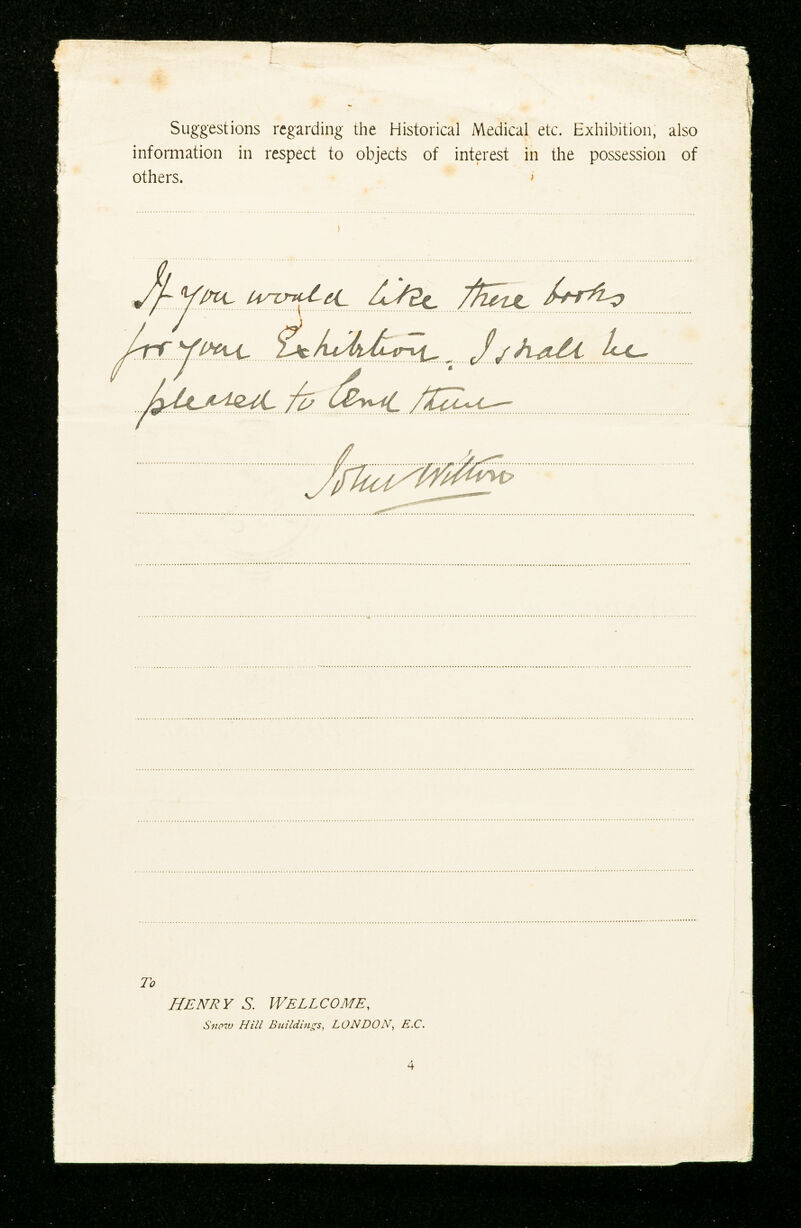 Suggestions regarding the Historical Medical etc. Exhibition, also
information in respect to objects of interest in the possession of
others.
If you would like these books
for your Exhibition, I shall be
pleased to lend them
John Wilton
To
HENRY S. WELLCOME,
Snow Hill Buildings, LONDON, E.C.
4